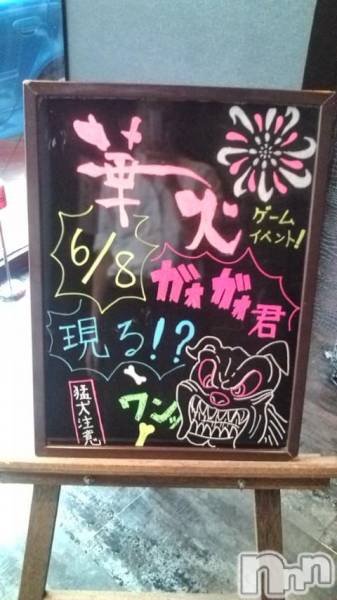 華火
ゲーム
イベント!
6/8
ガオガオ君
現る!?
猛犬注意
ワンッ
nnn